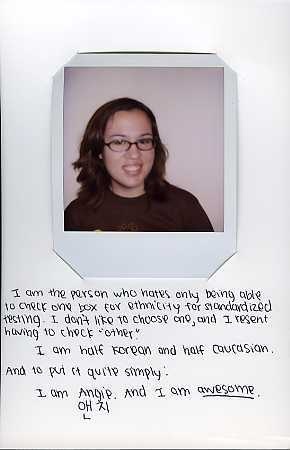 I am the person who hates only being able
to check one box for ethnicity for standardized
testing. I don't like to choose one, and I resent
having to check "other."
I am half Korean and half Caucasian.
And to put it quite simply:
I am Angie. And I am awesome.
앤지